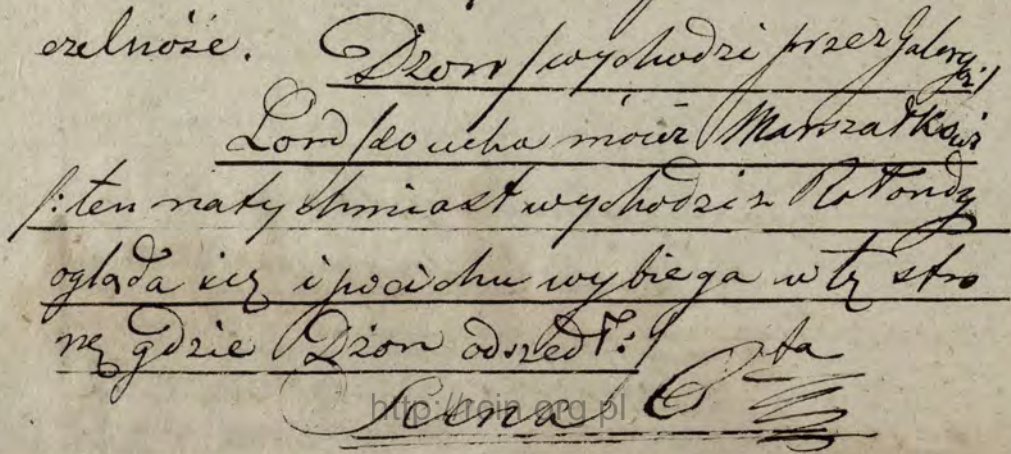 czelność. Dżon /wychodzi przez Galeryą:/
Lord /do ucha mówi Marszałkowi
/: ten natychmiast wychodzi z Rotondy
ogląda się i pocichu wybiega w tę stro
nę gdzie Dżon odszedł:/
Scena 6ta
http://rcin.org.pl